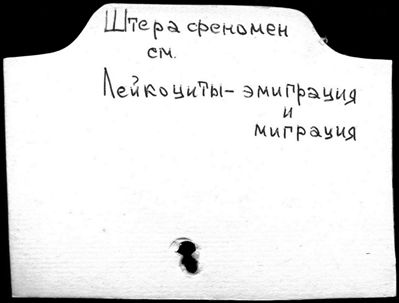 Штера феномен
см.
Лейкоциты - эмиграция
и
миграция